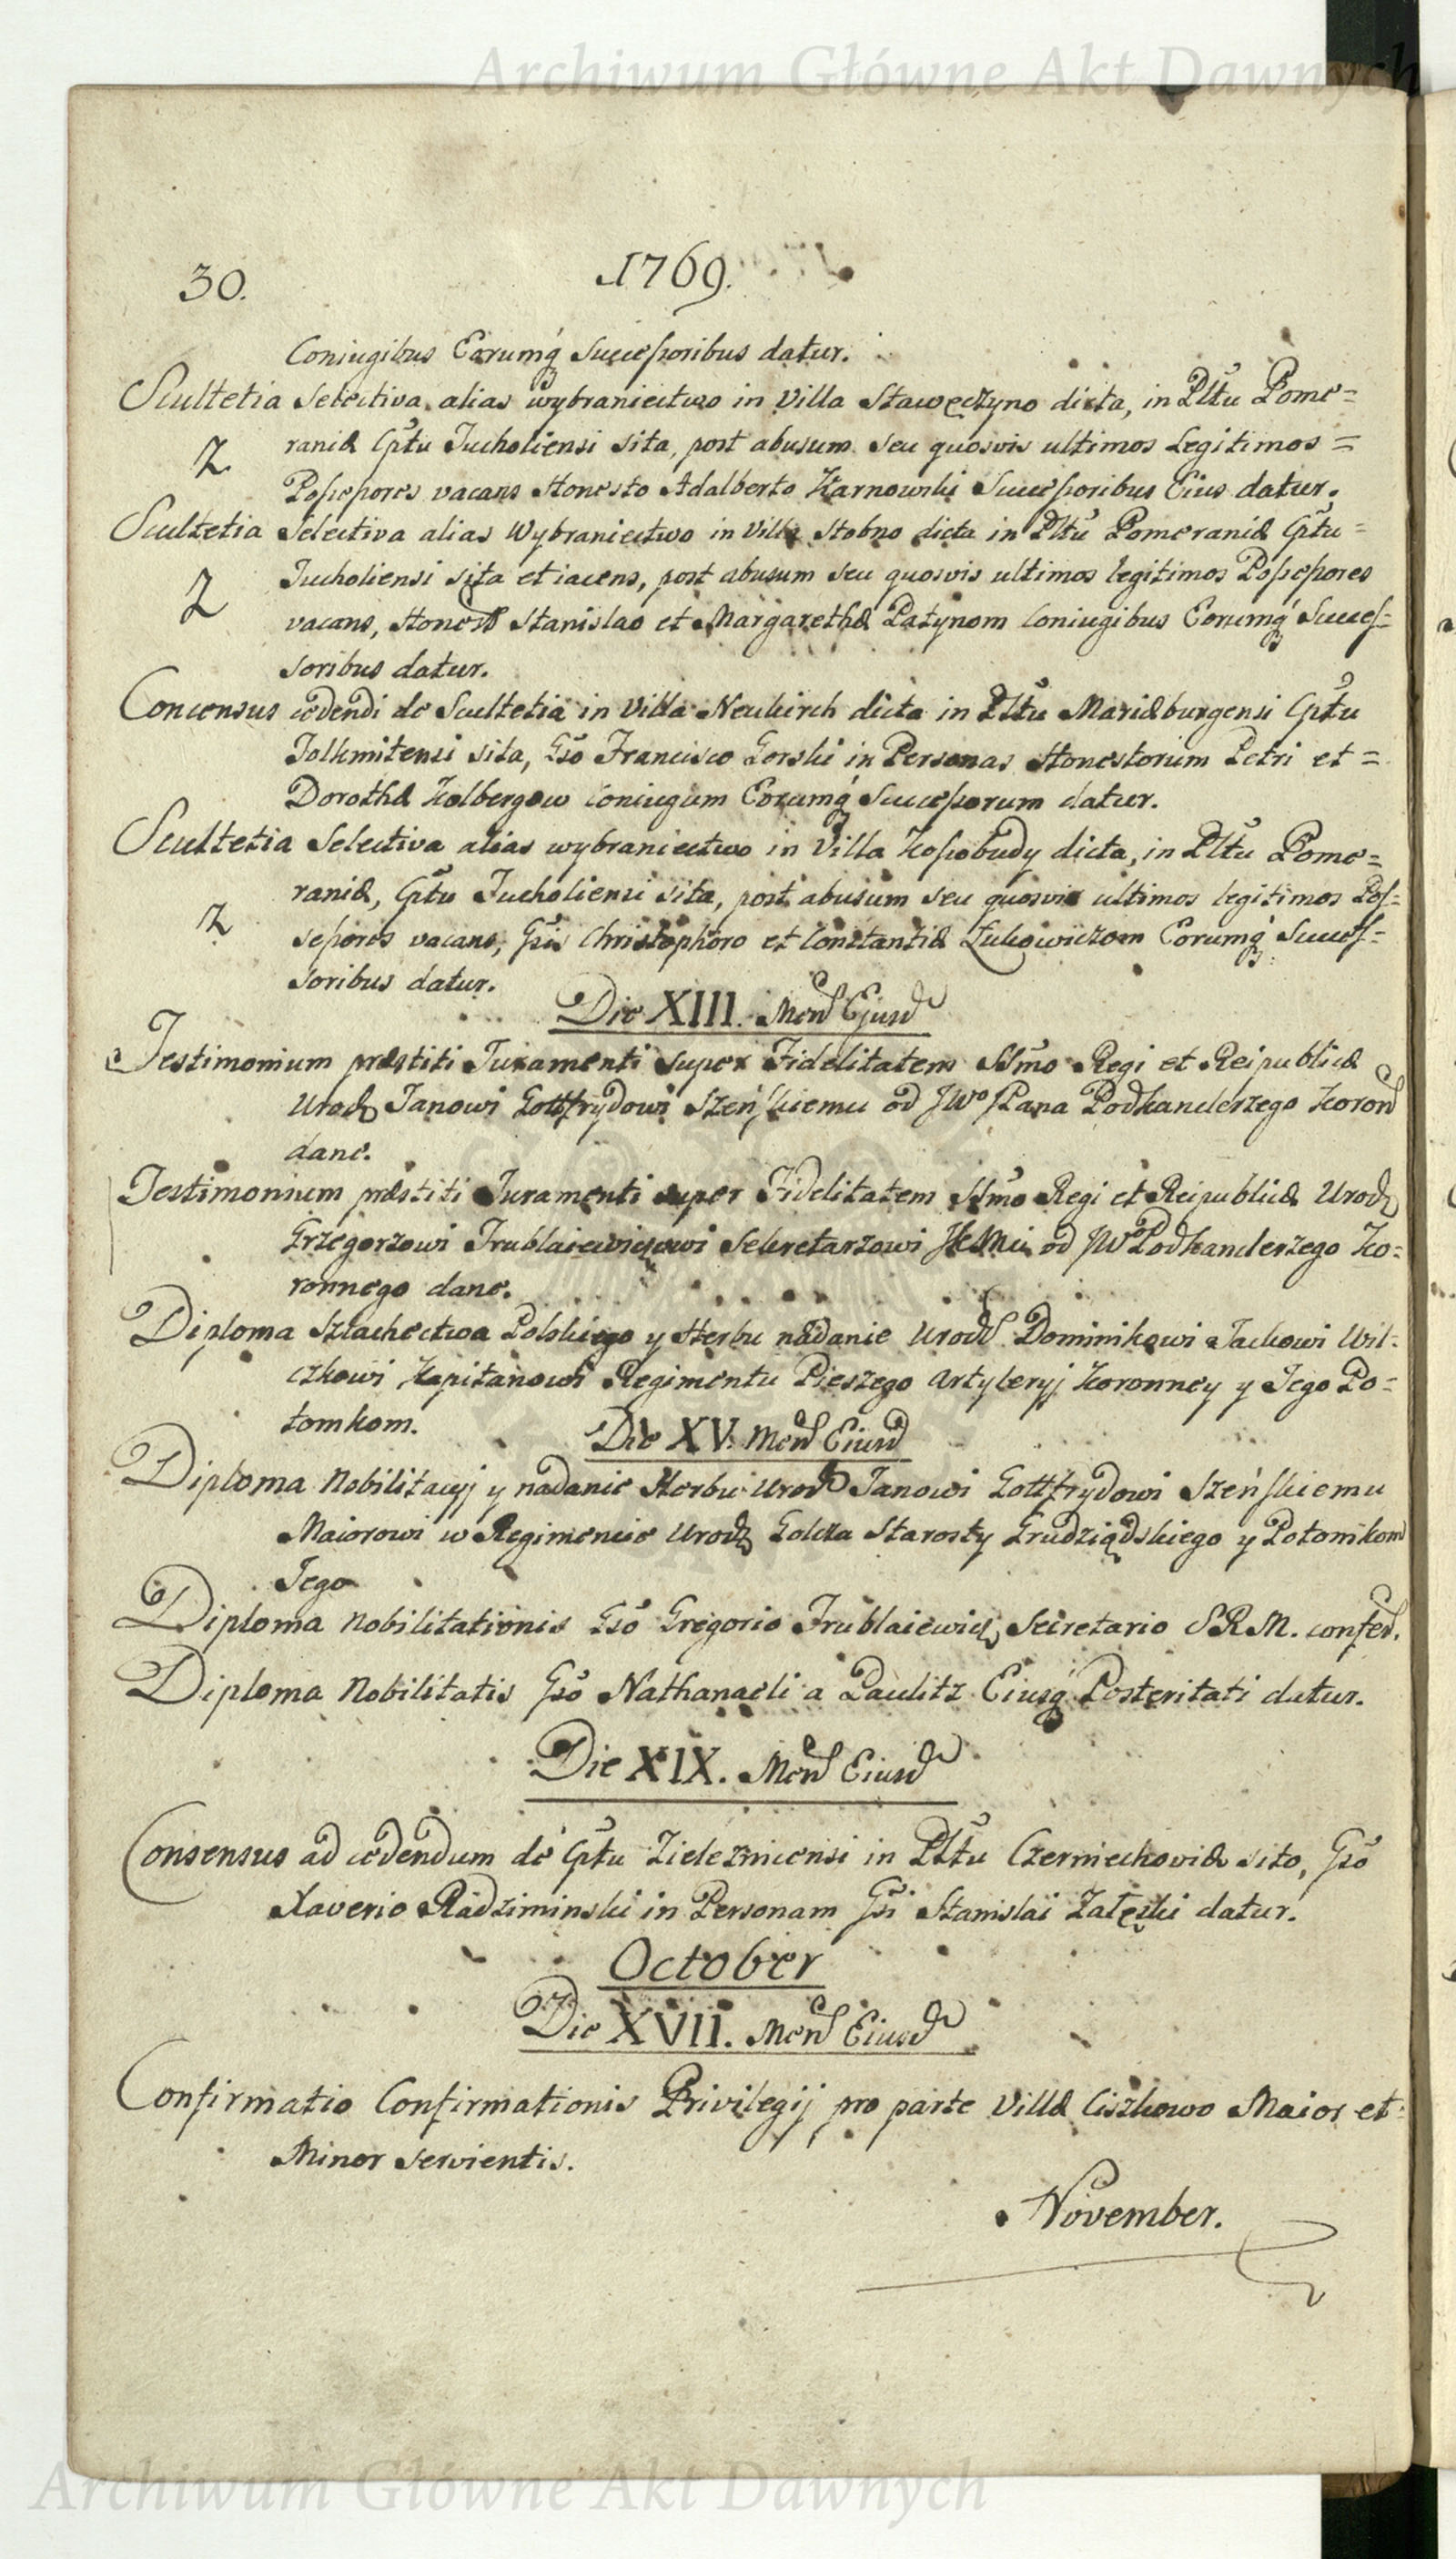 Archiwum Główne Akt Dawnych
30.
1769.
Coniugibus Eorumq́ Successoribus datur.
Scultetia Selectiva alias wybraniectwo in Villa Stawęczyno dicta, in Pltu Pome=
raniæ Cptu Tucholiensi sita, post abusum seu quosvis ultimos Legitimos =
2
Possessores vacans Honesto Adalberto Karnowski Successoribus Eius datur.
Scultetia Selectiva alias Wybraniectwo in Villa Stobno dicta in Pltu Pomeraniæ Cptu =
2
Tucholiensi sita et iacens, post abusum seu quosvis ultimos legitimos Possessores
vacans, Honest Stanislao et Margarethæ Patynom Coniugibus Eorumq́ Succes=
soribus datur.
Concensus cedendi de Scultetia in Villa Neukirch dicta in Pltu Mariæburgensi Cptu
Tolkmitensi sita, Gso Francisco Gorski in Personas Honestorum Petri et =
Dorothæ Kolbergow Coniugum Eorumq́ Successorum datur.
Scultetia Selectiva alias wybraniectwo in Villa Kossobudy dicta, in Pltu Pome=
raniæ, Cptu Tucholiensi sita, post abusum seu quosvis ultimos legitimos Pos=
2
sessores vacans, Gsis Christophoro et Constantiæ Lukowiczom Eorumq́ Succes=
soribus datur.
Die XIII. Mens Ejusd
Testimonium præstiti Juramenti super Fidelitatem Ssmo Regi et Reipublicæ
Urodz Janowi Gottfrydowi Szeńskiemu od JWo Pana Podkanclerzego Koron
dane.
Testimonium præstiti Juramenti super Fidelitatem Ssmo Regi et Reipublicæ Urodz
Grzegorzowi Trublaiewiczowi Sekretarzowi JKMci od JWo Podkanclerzego Ko=
ronnego dane.
Diploma Szlachectwa Polskiego y Herbu nadanie Urodz Dominikowi Jackowi Wil=
czkowi Kapitanowi Regimentu Pieszego Artyleryj Koronney y Jego Po=
tomkom.
Die XV. Mens Eiusd
Diploma Nobilitacyj y nadanie Herbu Urodz Janowi Gottfrydowi Szeńskiemu
Maiorowi w Regimencie Urodz Goltza Starosty Grudziądskiego y Potomkom
Jego
Diploma Nobilitationis Gso Gregorio Trublaiewicz, Secretario S.R.M. confer.
Diploma Nobilitatis Gso Nathanaeli a Paulitz Eiusq́ Posteritati datur.
Die XIX. Mens Eiusd
Consensus ad cedendum de Cptu Zieleznicensi in Pltu Czerniechoviæ sito, Gso
Xaverio Radziminski in Personam Gsi Stanislai Załęski datur.
October
Die XVII. Mens Eiusd
Confirmatio Confirmationis Privilegij pro parte Villæ Ciszkowo Maior et
Minor servientis.
November.
Archiwum Główne Akt Dawnych